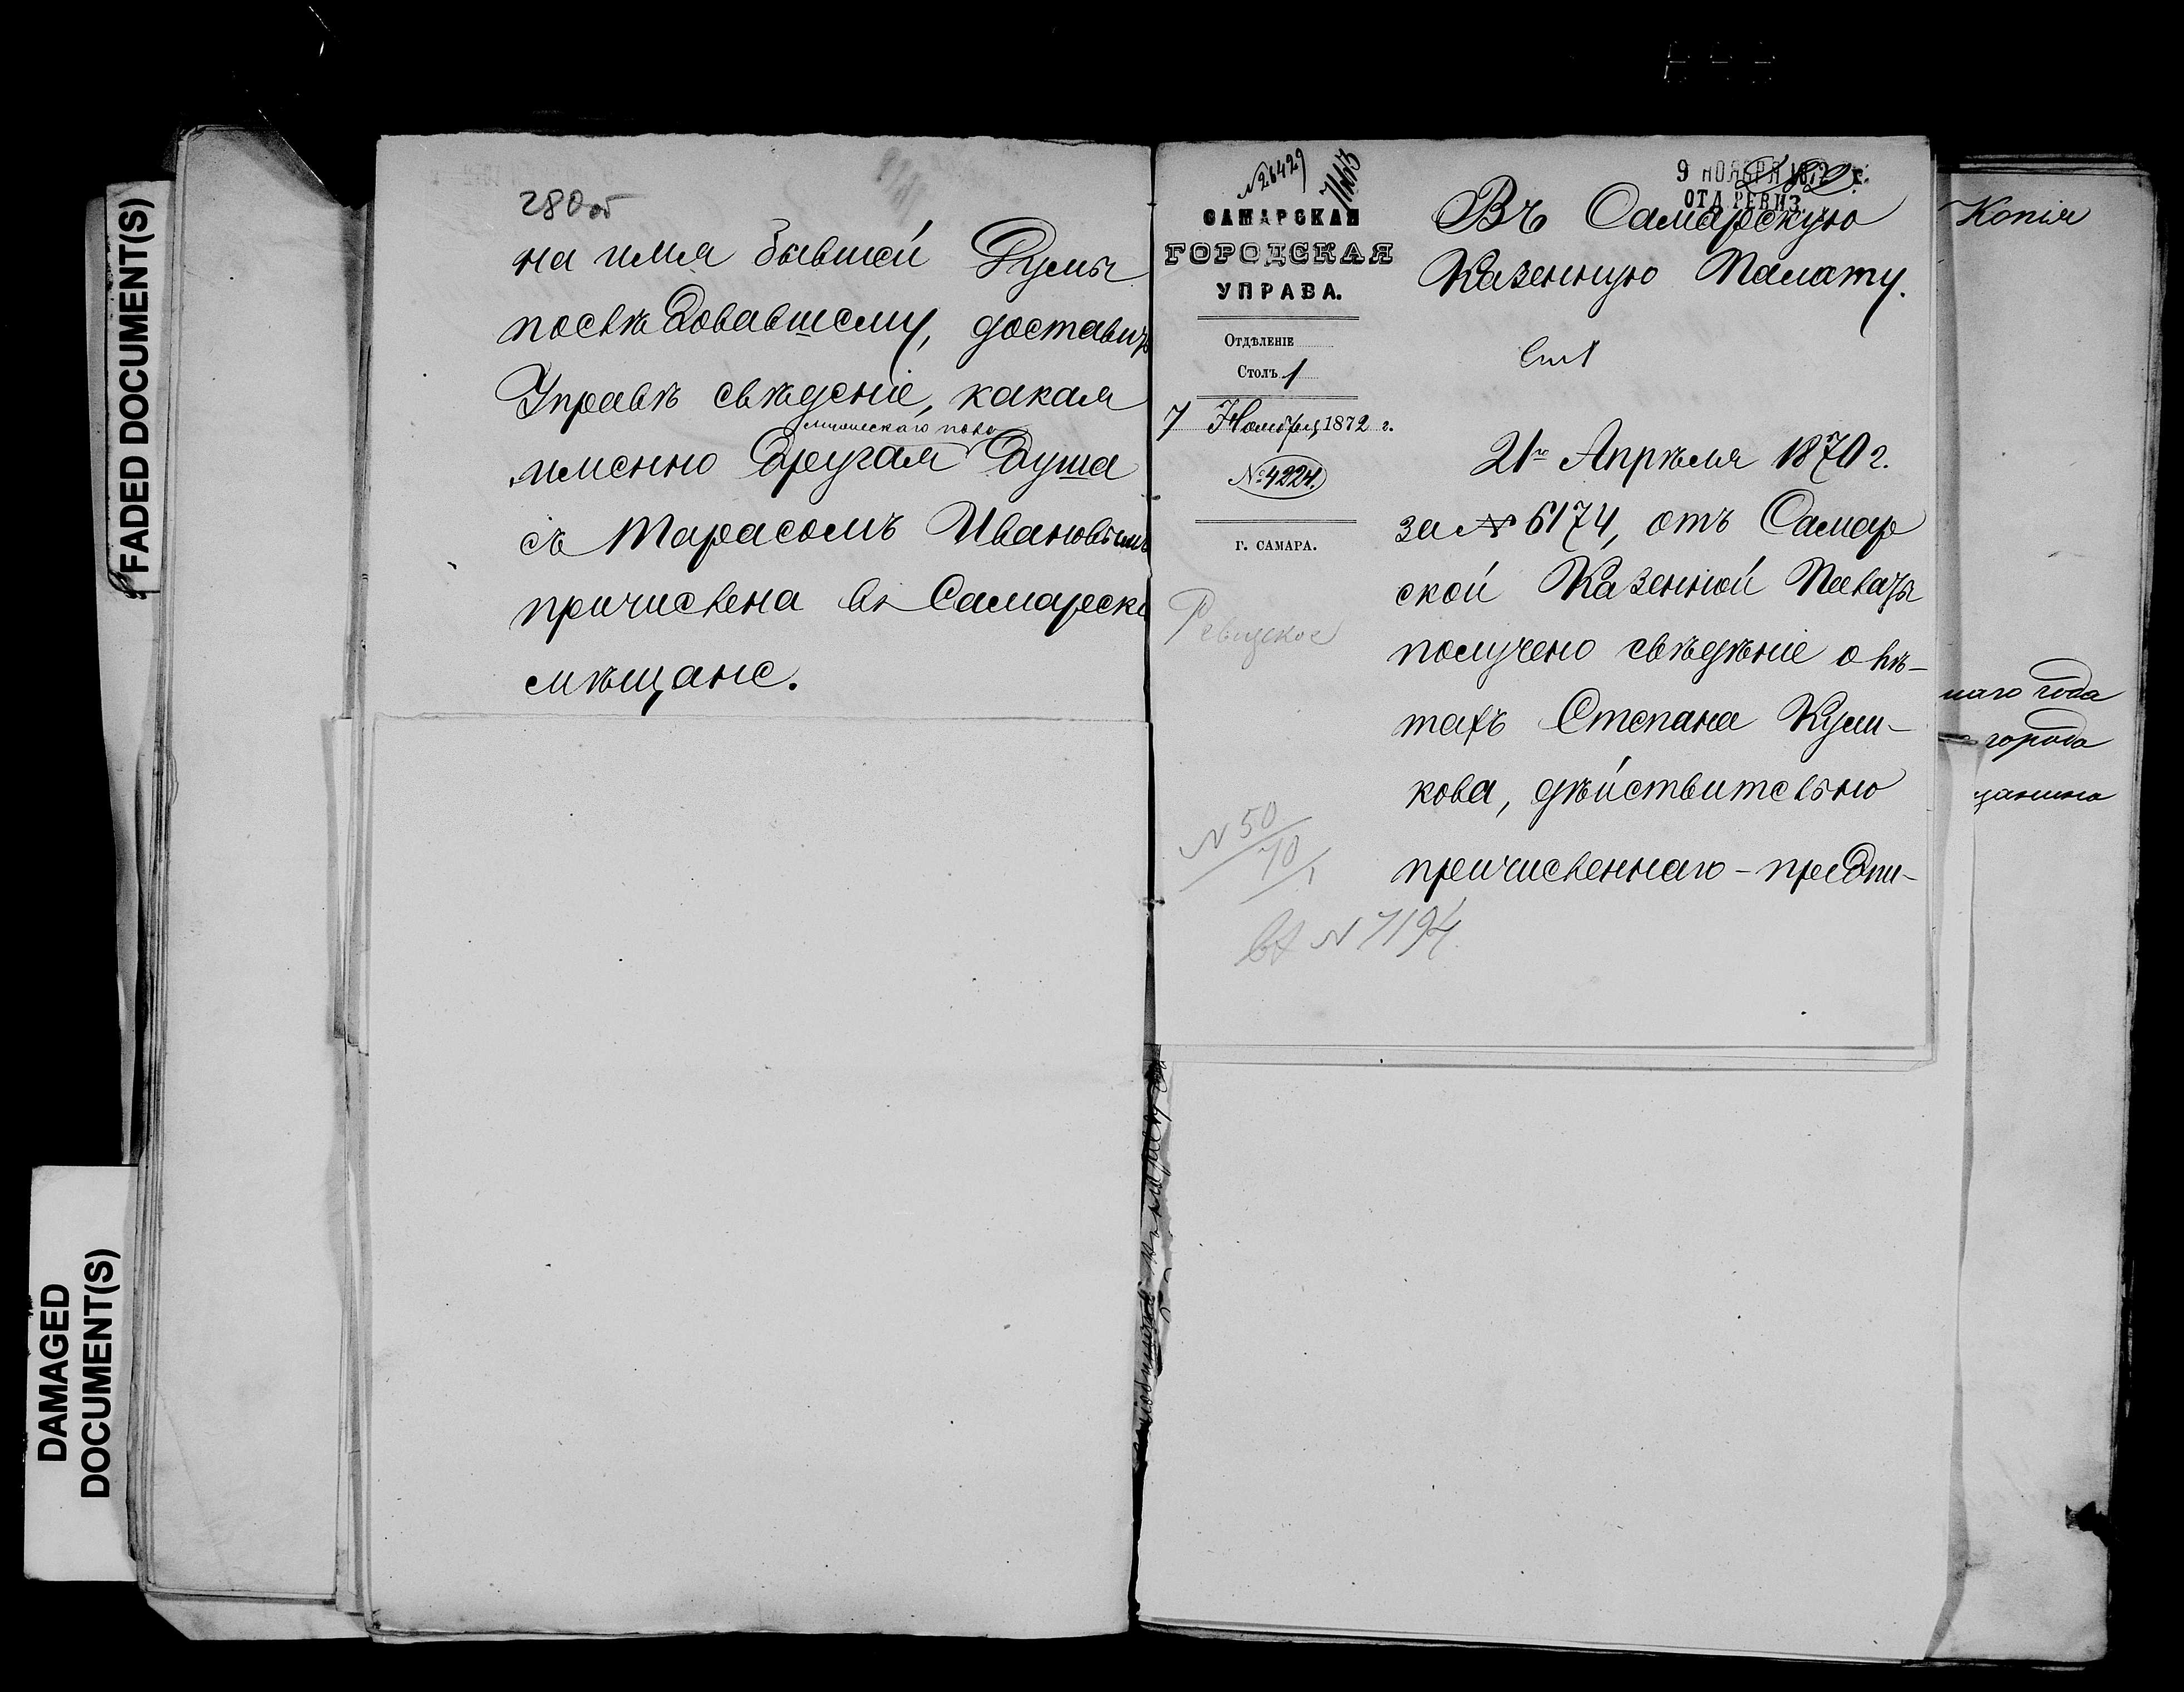 FADED DOCUMENT(S)
DAMAGED
DOCUMENT(S)
280 об
на имя бывшей Думы
послѣдовавшему, доставить
Управѣ свѣдѣніе, какая
именно другая душа
съ Тарасомъ Ивановымъ
причислена въ Самарскі
мѣщане.
№ 26429
САМАРСКАЯ
ГОРОДСКАЯ
УПРАВА.
Отдѣленіе
Столъ 1
7 Ноября 1872 г.
№ 4224.
Г. САМАРА.
Ревизское
N 50
70
вх N 7194
9 НОЯБРЯ 187 г.
ОТД. РЕВИЗ.
Въ Самарскую
Казенную Палату.
21го Апрѣля 1870 г.
за № 6174, отъ Самар
ской Казенной Палаты
получено свѣдѣніе о лѣ-
тахъ Степана Кули-
кова, дѣйствительно
причисленнаго - предпи-
Копія
наго года
города
щанина